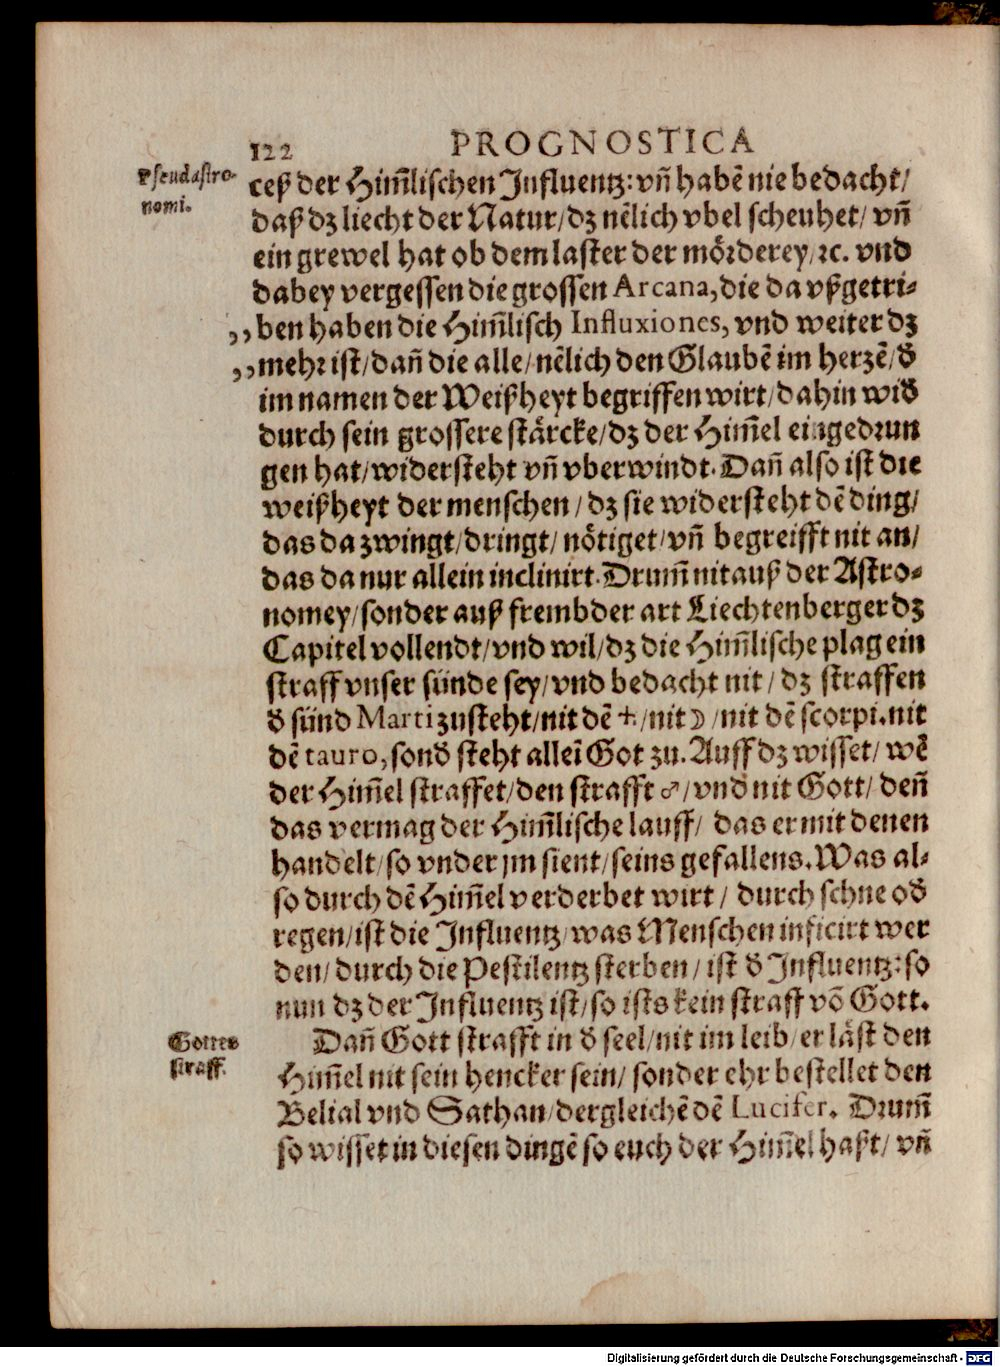 122 PROGNOSTICA
Pseudastro-
nomi.
ceß der Him̃lischen Influentz: vñ habẽ nie bedacht/
daß dz liecht der Natur/ dz nẽlich vbel scheuhet/ vñ
ein grewel hat ob dem laster der mörderey/ ꝛc. vnd
dabey vergessen die grossen Arcana, die da vßgetri-
,, ben haben die Him̃lisch Influxiones, vnd weiter dz
,, mehr ist/ dañ die alle/ nẽlich den Glaubẽ im herzẽ/ đ
im namen der Weißheyt begriffen wirt/ dahin wiđ
durch sein grossere stärcke/ dz der Him̃el eingedrun
gen hat/ widersteht vñ vberwindt. Dañ also ist die
weißheyt der menschen/ dz sie widersteht dẽ ding/
das da zwingt/ dringt/ nötiget/ vñ begreifft nit an/
das da nur allein inclinirt. Drum̃ nit auß der Astro-
nomey/ sonder auß frembder art Liechtenberger dz
Capitel vollendt/ vnd wil/ dz die Him̃lische plag ein
straff vnser sünde sey/ vnd bedacht nit/ dz straffen
đ sünd Marti zusteht/ nit dẽ ♄/ nit ☽/ nit dẽ scorpi. nit
dẽ tauro, sonđ steht alleĩ Got zu. Auff dz wisset/ wẽ
der Him̃el straffet/ den strafft ♂/ vnd nit Gott/ deñ
das vermag der Him̃lische lauff/ das er mit denen
handelt/ so vnder jm sient/ seins gefallens. Was al-
so durch dẽ Him̃el verderbet wirt/ durch schne ođ
regen/ ist die Influentz/ was Menschen inficirt wer
den/ durch die Pestilentz sterben/ ist đ Influentz: so
nun dz der Influentz ist/ so ists kein straff võ Gott.
Gottes
straff.
Dañ Gott strafft in đ seel/ nit im leib/ er läst den
Him̃el nit sein hencker sein/ sonder ehr bestellet den
Belial vnd Sathan/ dergleichẽ dẽ Lucifer. Drum̃
so wisset in diesen dingẽ so euch der Him̃el haßt/ vñ
Digitalisierung gefördert durch die Deutsche Forschungsgemeinschaft - DFG